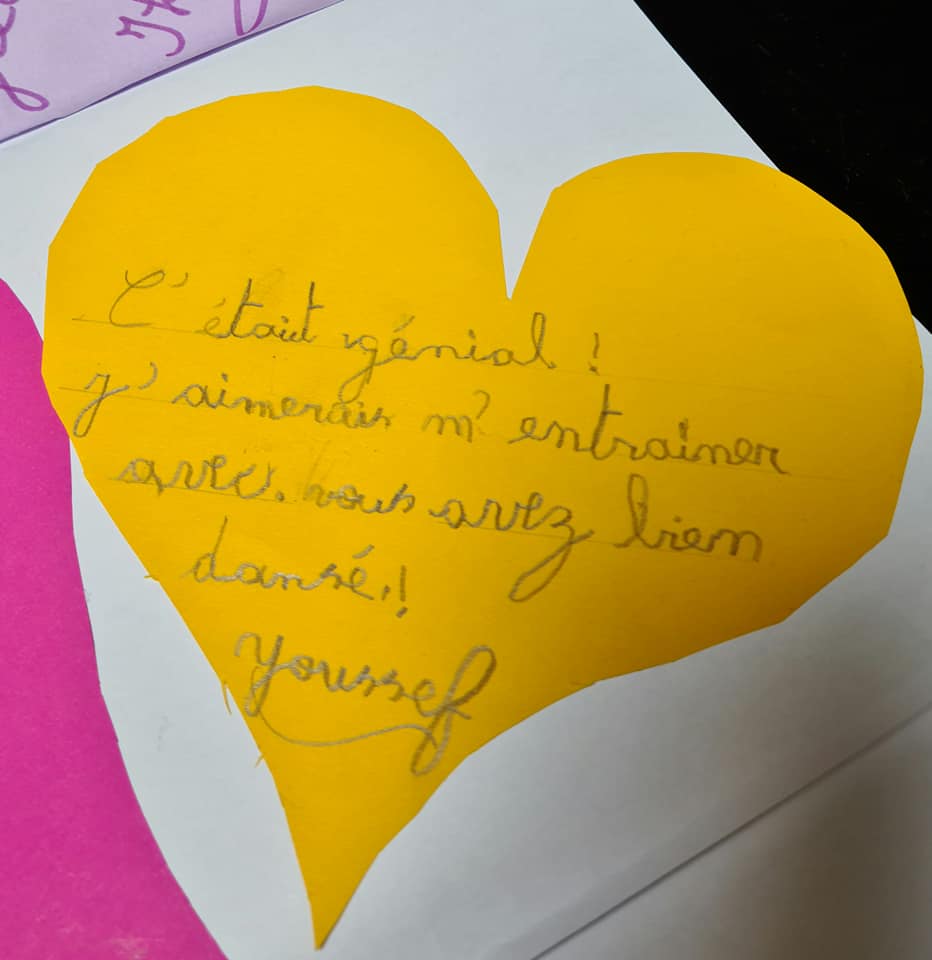 C'était génial !
J'aimerais m'entraîner
avec. vous avez bien
dansé.!
Youssef